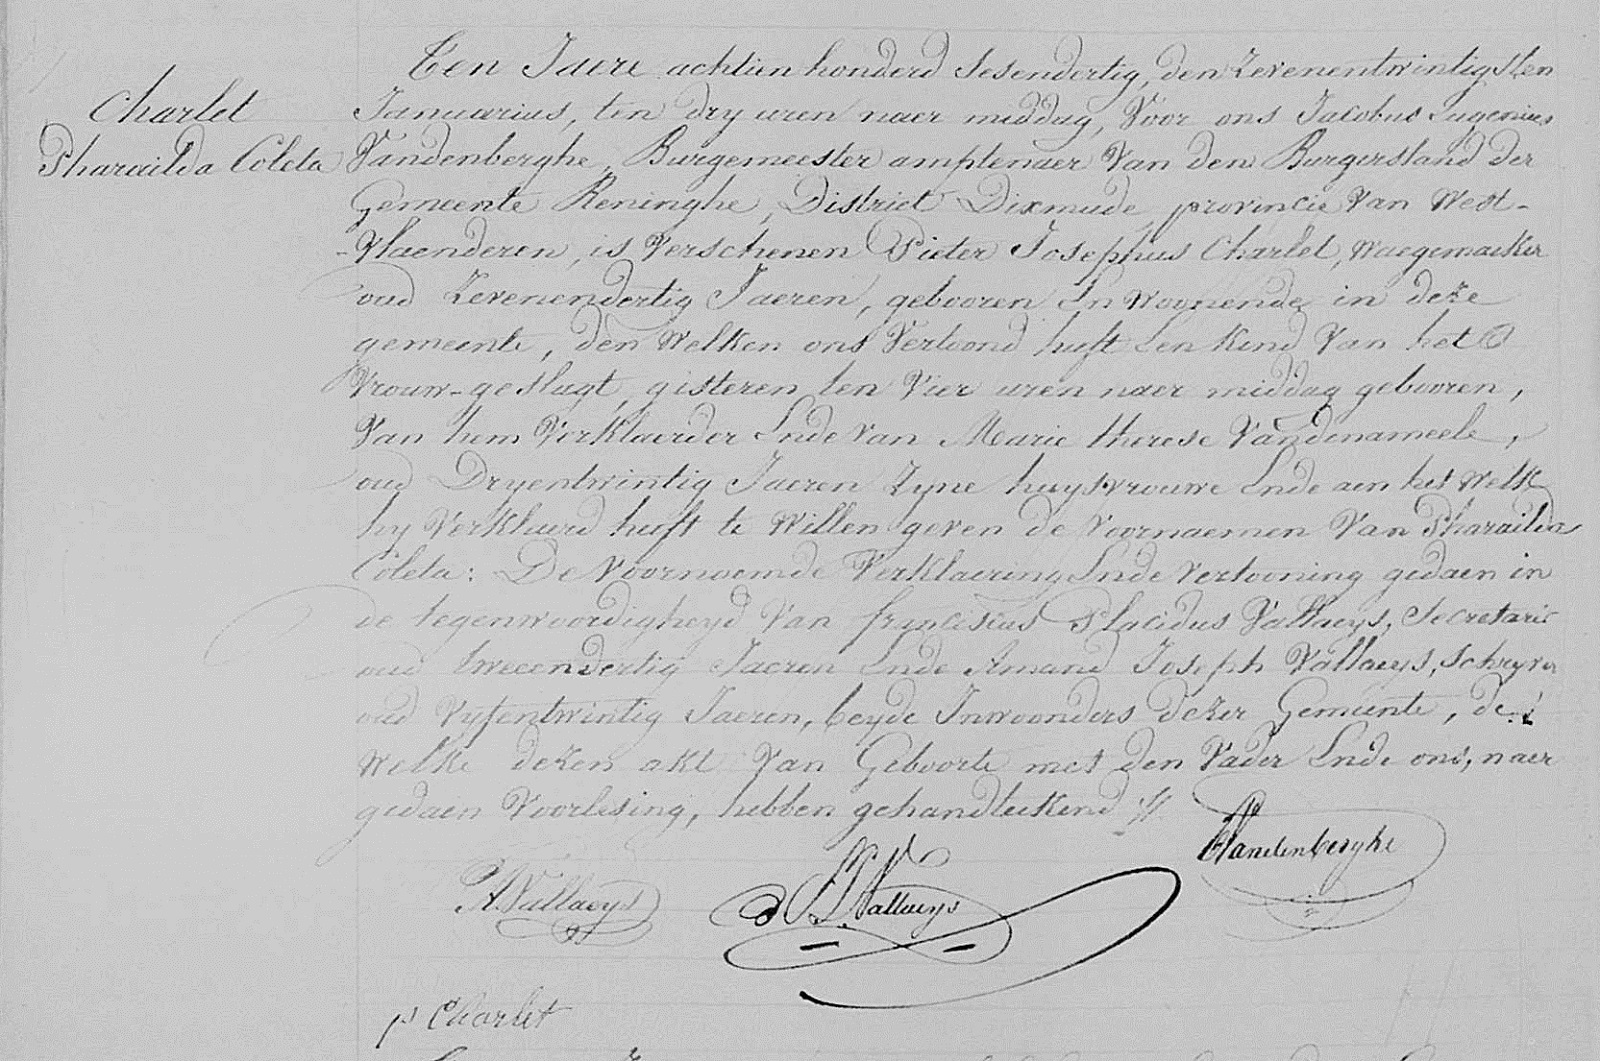 Charlet
Pharaïlda Coleta
Ten Jaere achtien honderd sesendertig, den Zevenentwintigsten
Januarius, ten dry uren naer middag, Voor ons Jacobus Eugenius
Vandenberghe, Burgemeester amptenaer Van den Burgerstand der
Gemeente Reninghe, District Dixmude, provincie Van West-
-Vlaenderen, is Verschenen Pieter Josephus Charlet, Waegemaeker
oud Zevenendertig Jaeren, gebooren En Woonende in deze
gemeente, den Welken ons Vertoond heeft Een Kend Van het
Vrouw-geslagt, gisteren ten Vier uren naer middag gebooren,
Van hem Verklaerder Ende Van Marie therese Vandenameele,
oud Dryentwintig Jaeren Zyne huysvrouwe Ende aen het Welk
hy Verklaerd heeft te Willen geven de Voornaemen Van Pharaïlda
Coleta: De Voornoemde Verklaering Ende Vertooning gedaen in
de tegenwoordigheyd Van franciscus Placidus Vallaeys, Secretaris
oud tweeendertig Jaeren Ende Amand Joseph Vallaeys, schryver
oud Vyfentwintig Jaeren, beyde Inwoonders dezer Gemeente, de
Welke dezen akt Van Geboorte met den Vader Ende ons, naer
gedaen Voorlesing, hebben gehandteekend
Vandenberghe
A Vallaeys
Vallaeys
p Charlet